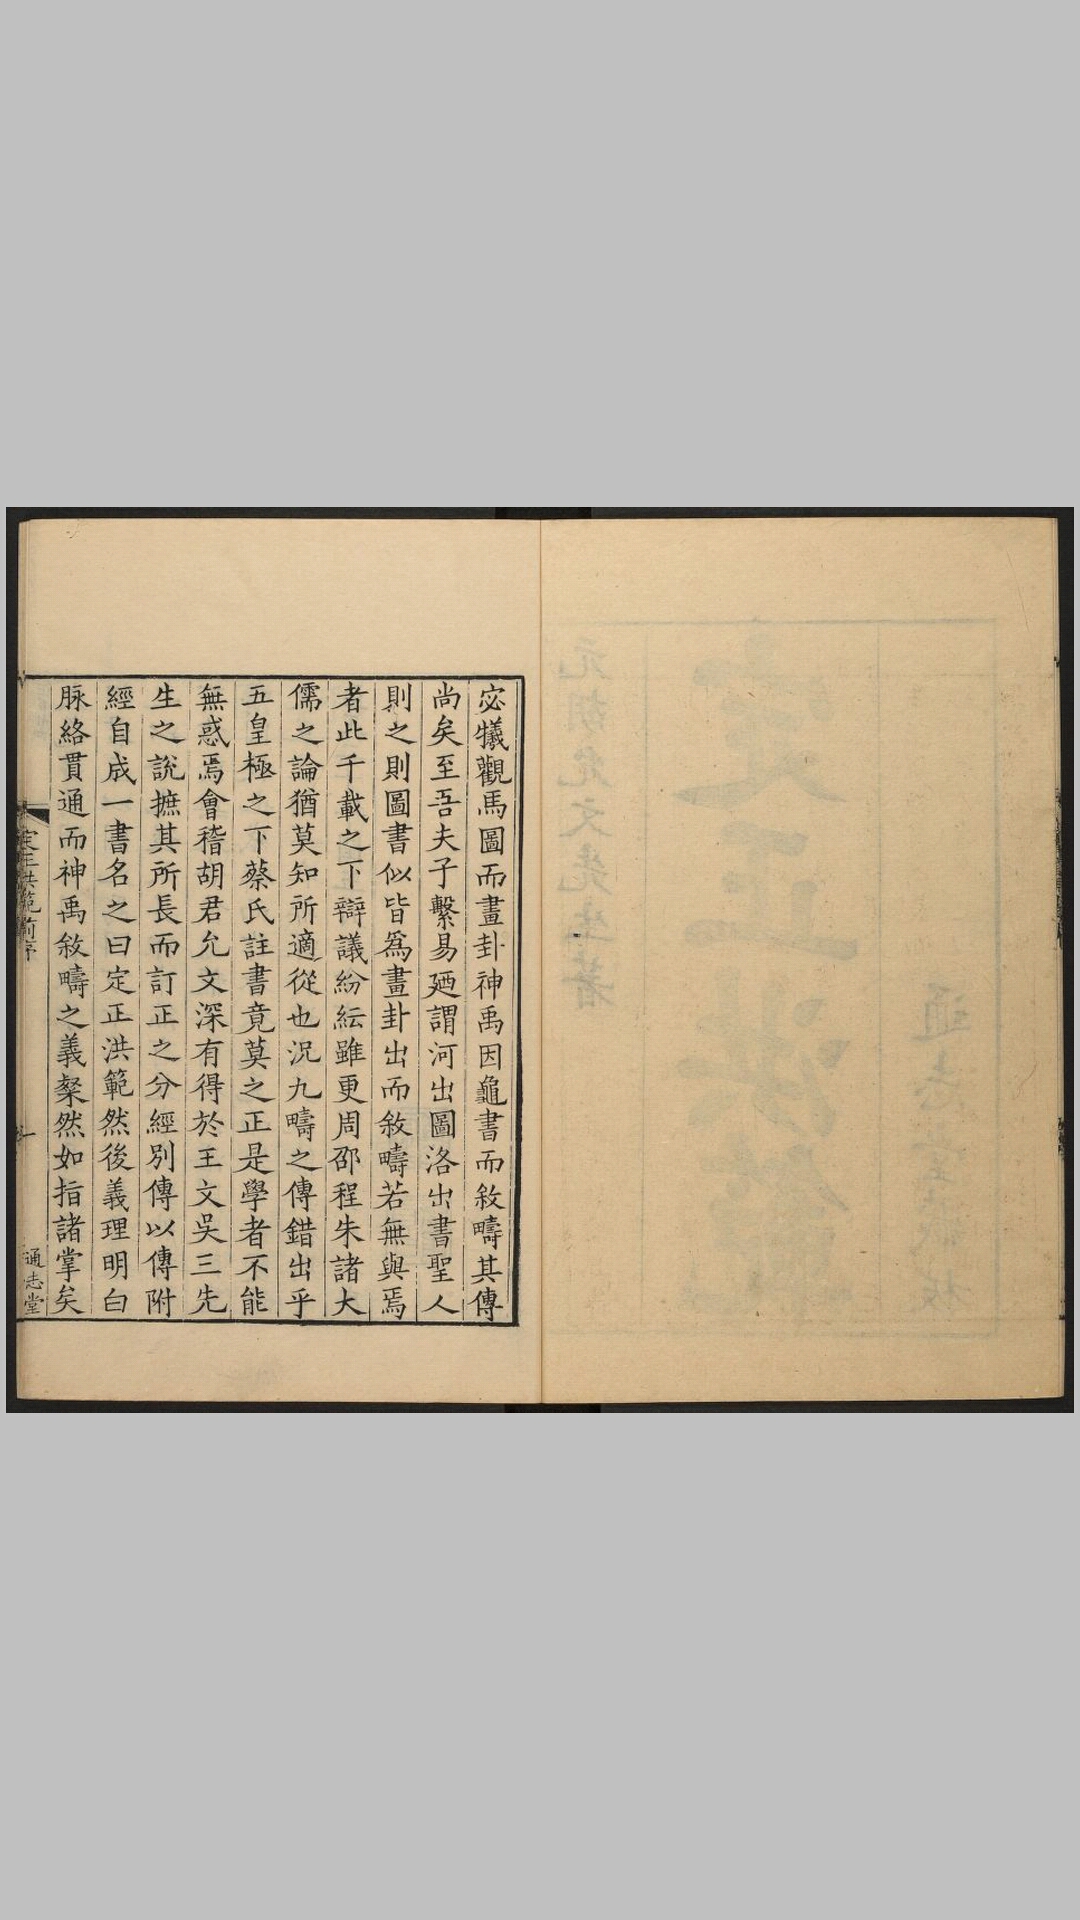 宓犧觀馬圖而畫卦神禹因龜書而敘疇其傳
尚矣至吾夫子繫易廼謂河出圖洛出書聖人
則之則圖書似皆爲畫卦出而敘疇若無與焉
者此千載之下辯議紛紜雖更周邵程朱諸大
儒之論猶莫知所適從也況九疇之傳錯出乎
五皇極之下蔡氏註書竟莫之正是學者不能
無惑焉會稽胡君允文深有得於王文吳三先
生之說摭其所長而訂正之分經別傳以傳附
經自成一書名之曰定正洪範然後義理明白
脉絡貫通而神禹敘疇之義粲然如指諸掌矣
定正洪範前序
一
通志堂